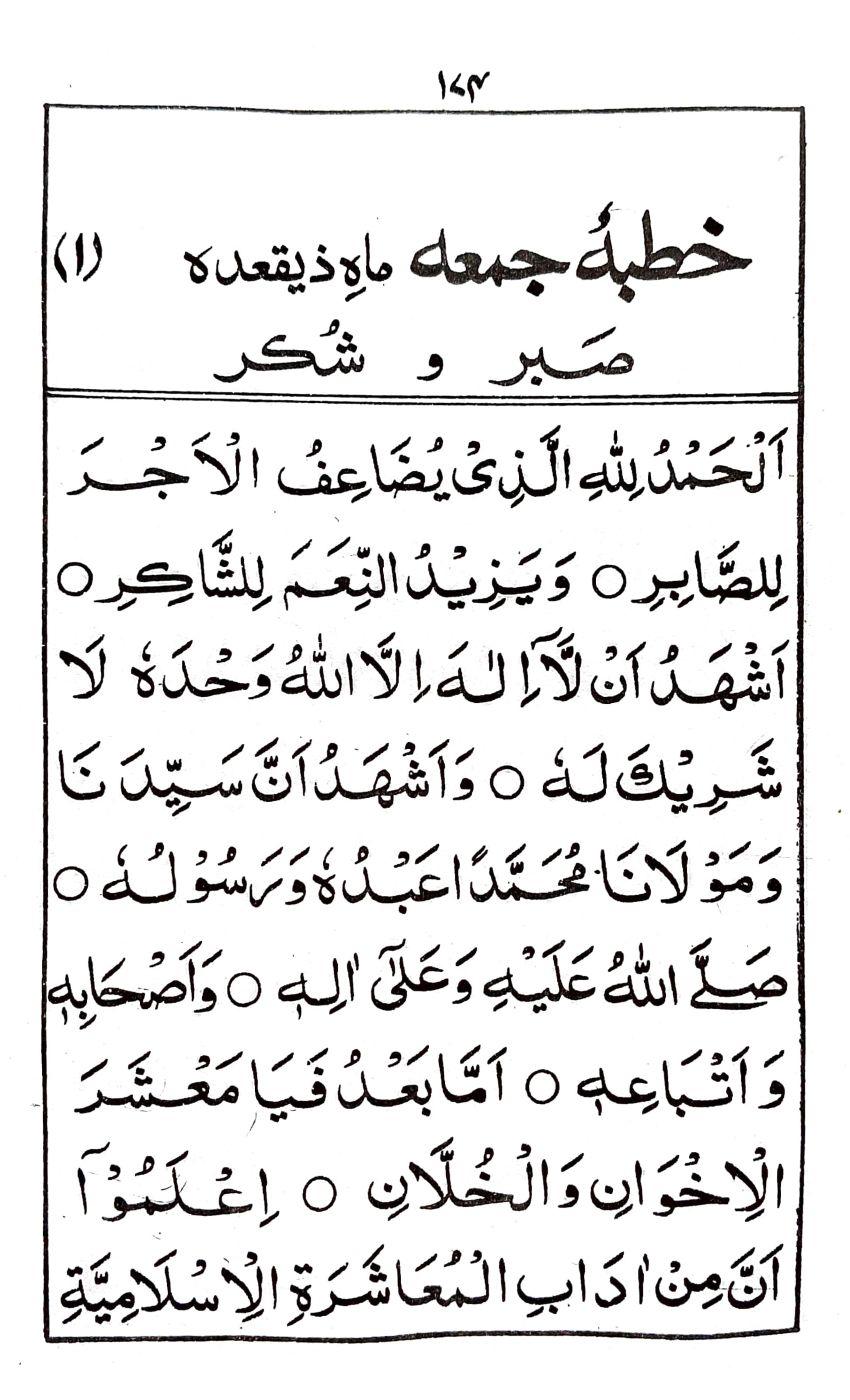 ۱۷۴
خطبۂ جمعہ ماہِ ذیقعدہ (۱)
صَبر و شُکر
اَلْحَمْدُ لِلّٰهِ الَّذِیْ یُضَاعِفُ الْاَجْرَ
لِلصَّابِرِ ○ وَیَزِیْدُ النِّعَمَ لِلشَّاکِرِ ○
اَشْهَدُ اَنْ لَّآ اِلٰهَ اِلَّا اللّٰهُ وَحْدَهٗ لَا
شَرِیْكَ لَهٗ ○ وَاَشْهَدُ اَنَّ سَیِّدَنَا
وَمَوْلَانَا مُحَمَّدًا عَبْدُهٗ وَرَسُوْلُهٗ ○
صَلَّے اللّٰهُ عَلَیْهِ وَعَلٰٓی اٰلِهٖ ○ وَاَصْحَابِهٖ
وَاَتْبَاعِهٖ ○ اَمَّا بَعْدُ فَیَا مَعْشَرَ
الْاِخْوَانِ وَالْخُلَّانِ ○ اِعْلَمُوْآ
اَنَّ مِنْ اٰدَابِ الْمُعَاشَرَةِ الْاِسْلَامِیَّةِ